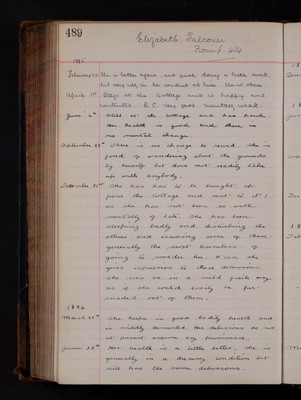 489
Elizabeth Falconer
From p. 414
She is better again, and quiet, doing a little work,
April 1st
Sleeps at the Cottage and is happy and
contented. B.C. very poor. mentally weak.
June 4th Still at the Cottage and has
Her health is good and there is
no mental change.
September 22nd There is no change to record. She is
fond of wandering about the grounds
by herself but does not readily take
up with anybody.
December 20th She has had to be brought up
from the Cottage and sent to
as she has not been so well
mentally of late. She has been
sleeping badly and disturbing the
others and accusing some of them,
generally the most harmless, of
going to murder her. When she
gives expression to these delusions
she does so in a mild quiet way
as if she could easily be per-
suaded out of them.
March 20th She keeps in good bodily health and
is mildly demented. Her delusions do not
at present assume any prominence.
June 20th Her health is a little better. She is
generally in a dreamy condition but
still has the same delusions.